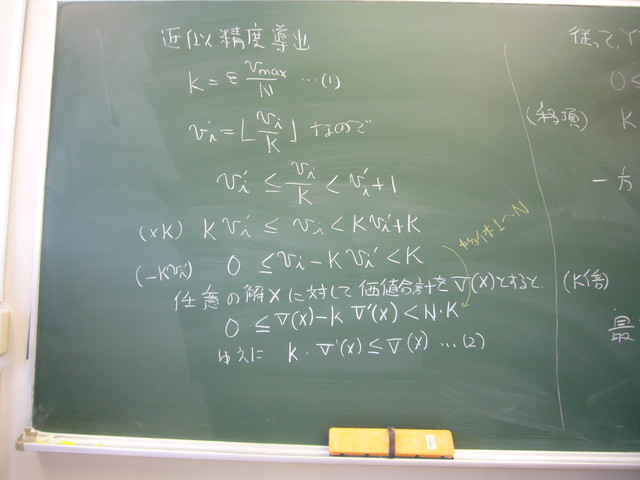 近似精度導出
K = ε v_max / N …(1)
v'_i = ⌊ v_i / K ⌋ なので
v'_i ≤ v_i / K < v'_i + 1
(×K) K v'_i ≤ v_i < K v'_i + K
(-K v'_i) 0 ≤ v_i - K v'_i < K
任意の解Xに対して価値合計をV(X)とすると、
0 ≤ V(X) - K V'(X) < N・K
ゆえに K・V'(X) ≤ V(X) …(2)
1〜N
従って、
0 ≤
(移項) K
一方
(K倍)
最